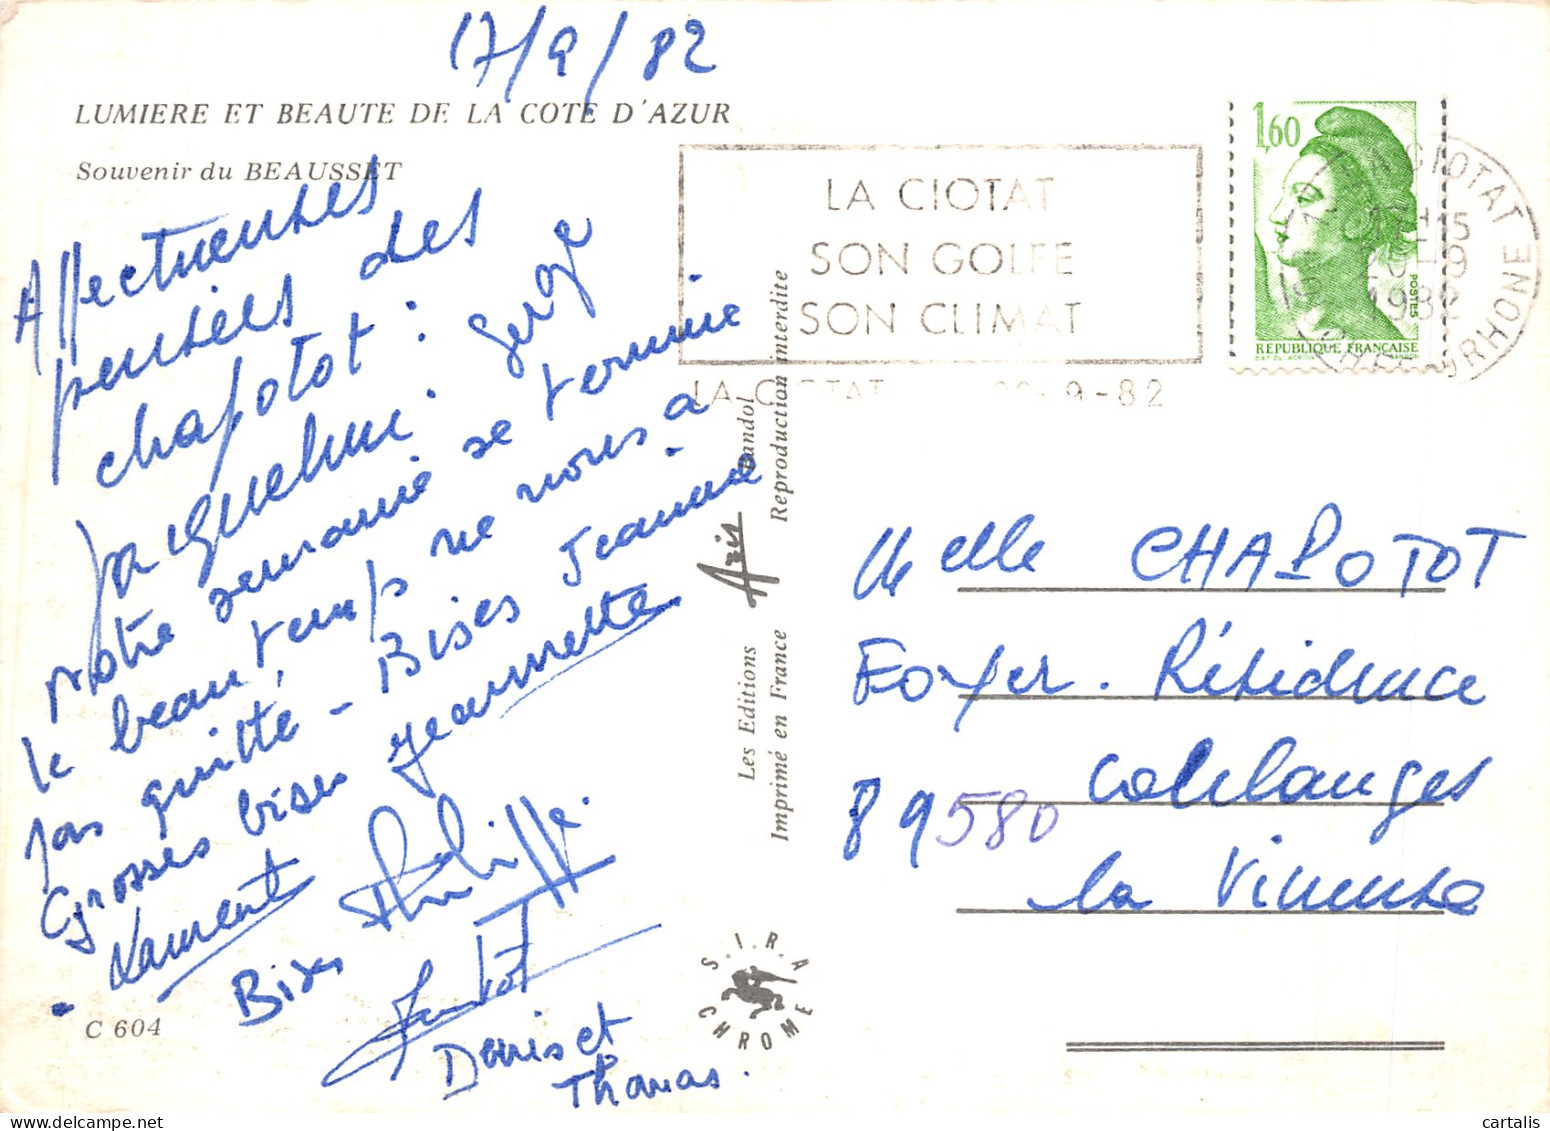 17/9/82
LUMIERE ET BEAUTE DE LA COTE D'AZUR
Souvenir du BEAUSSET
Affectueuses
pensées des
chapotot :
jacqueline. Serge
Notre semaine se termine
le beau temps ne nous a
pas quitté - Bises Jeannine
Grosses bises Jeannette
- Laurent
Bises Philippe.
Denis et
Thomas.
C 604
Les Editions Azis Bandol
Imprimé en France Reproduction interdite
S.I.R.A
CHROME
LA CIOTAT
SON GOLFE
SON CLIMAT
LA CIOTAT 20-9-82
1,60
POSTES
REPUBLIQUE FRANÇAISE
LA CIOTAT
H 15
20-9
1982
RHONE
Melle CHAPOTOT
Foyer. Résidence
Coulanges
89580
la Vineuse
cartalis